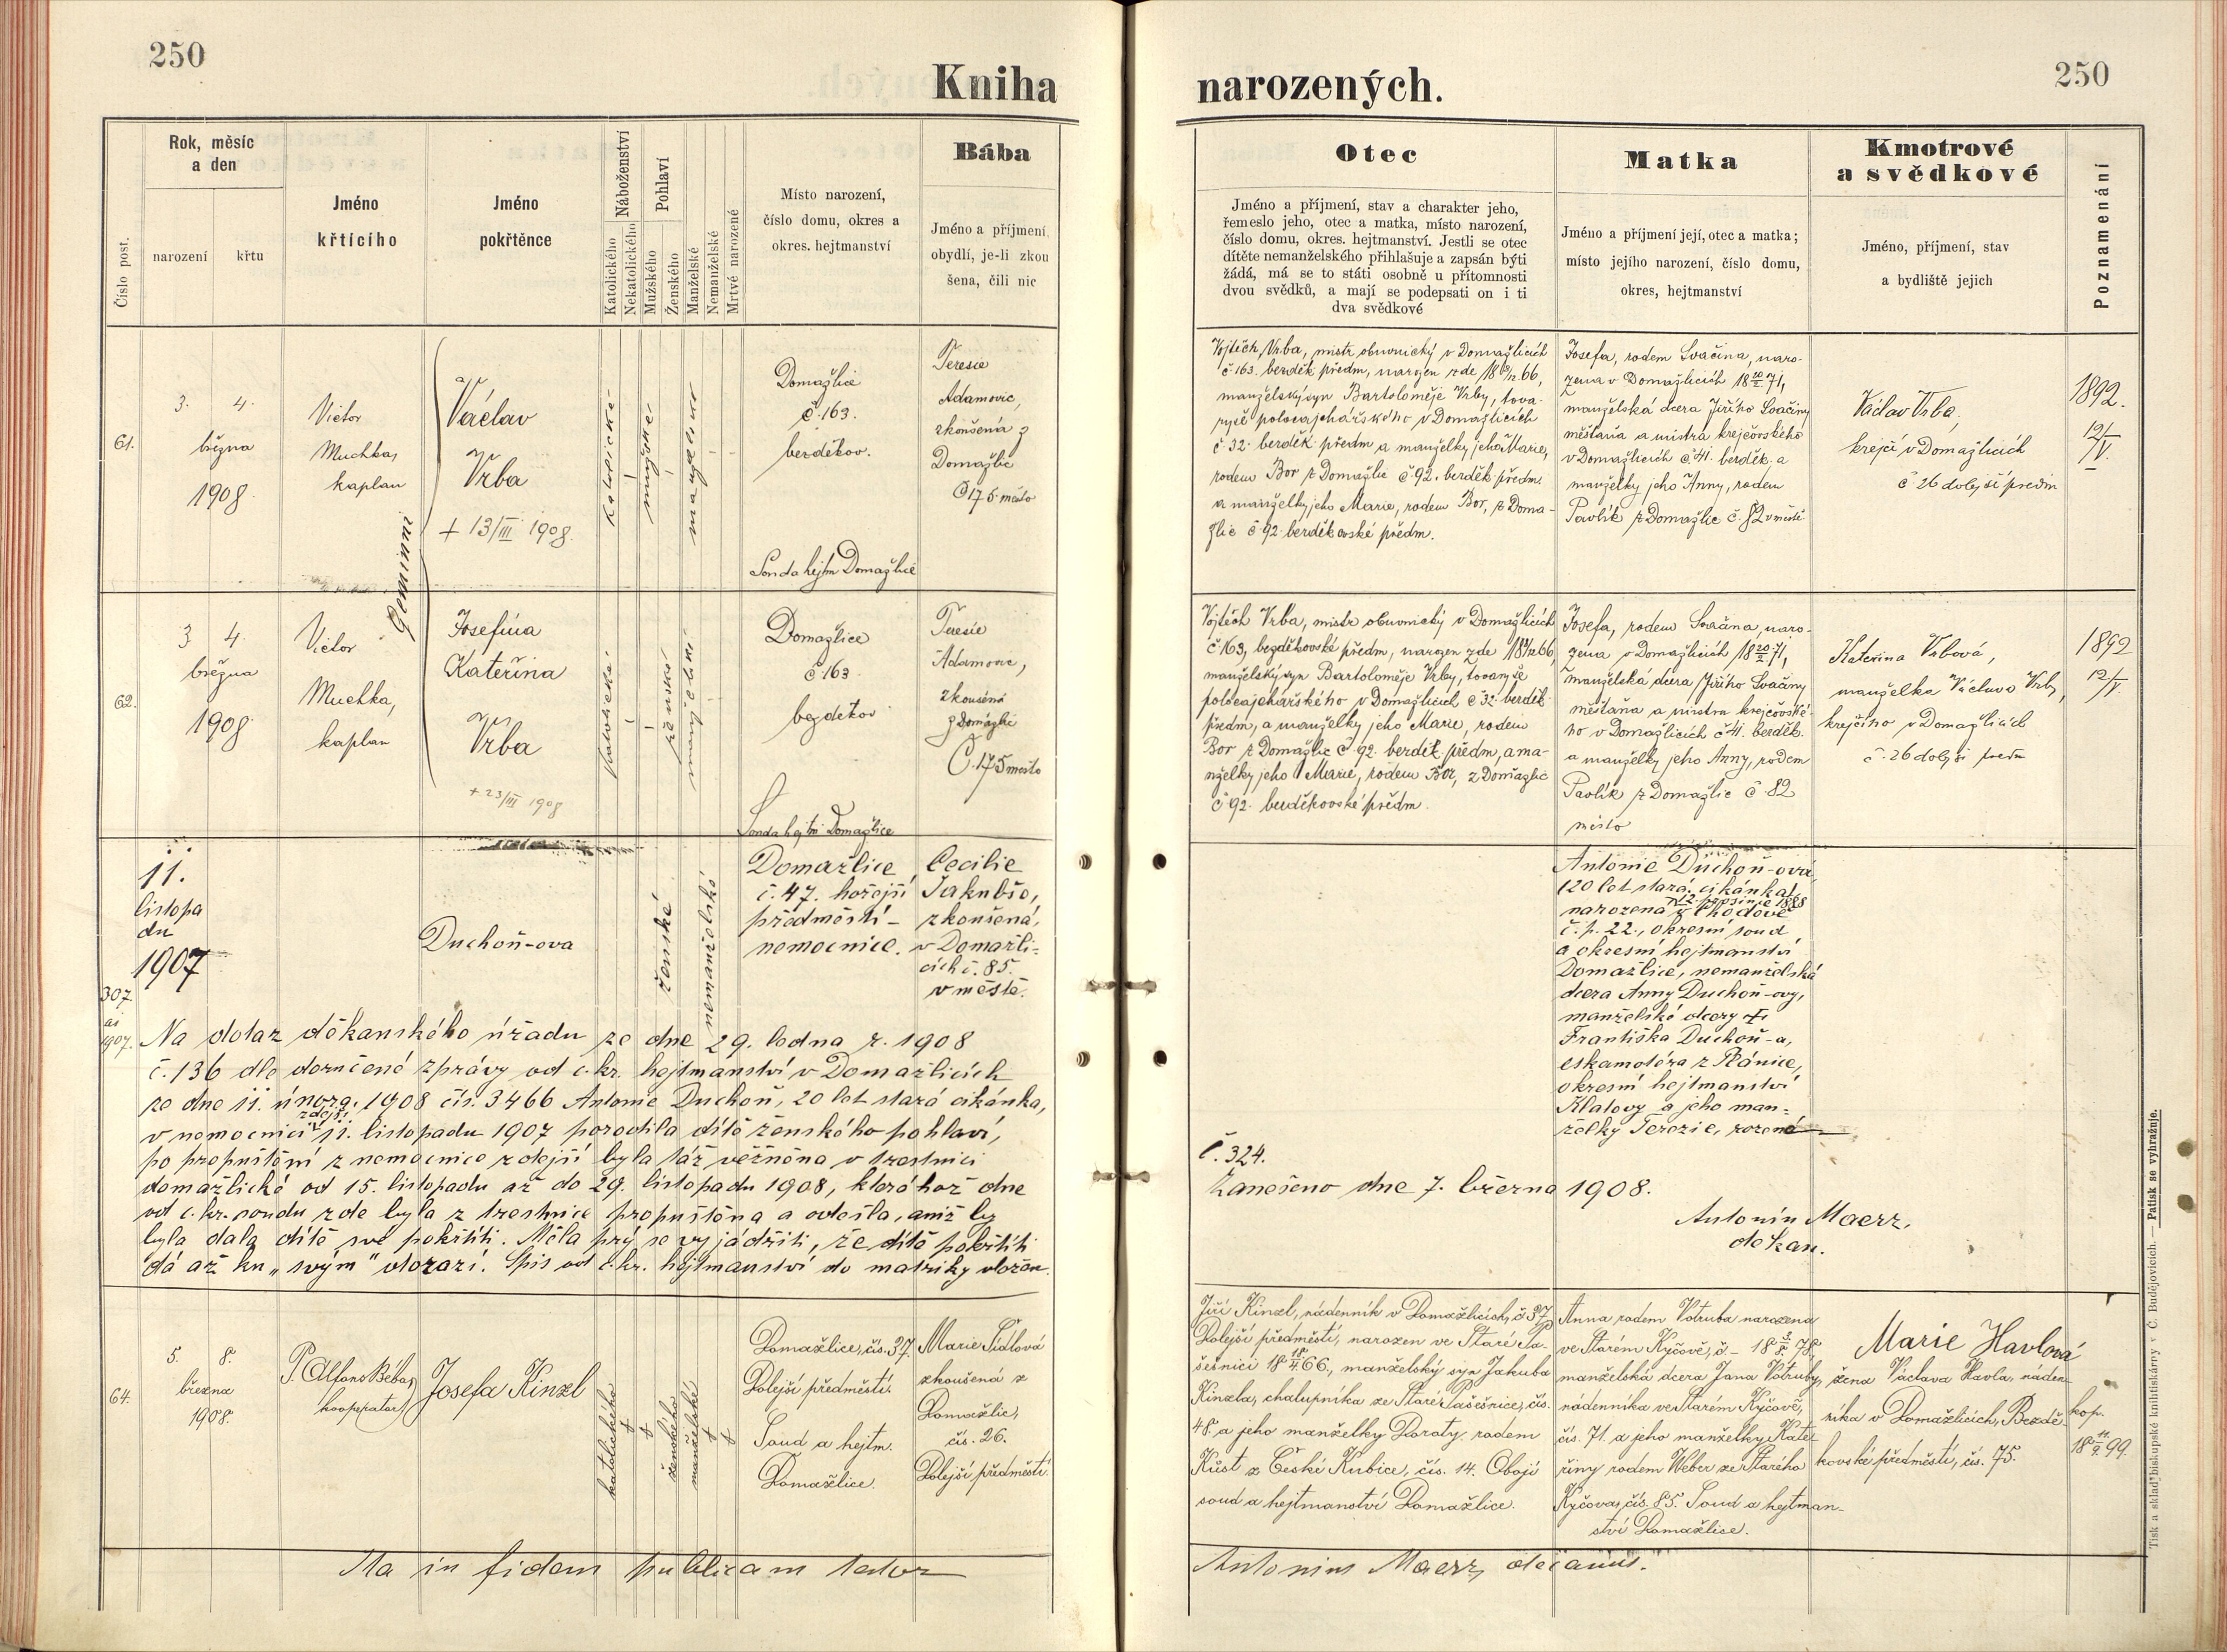 250
Kniha
narozených.
250
Číslo post.
Rok, měsíc
a den
narození
křtu
Jméno
křtícího
Jméno
pokřtěnce
Náboženství
Katolického
Nekatolického
Pohlaví
Mužského
Ženského
Manželské
Nemanželské
Mrtvé narozené
Místo narození,
číslo domu, okres a
okres. hejtmanství
Bába
Jméno a příjmení,
obydlí, je-li zkou
šena, čili nic
Otec
Jméno a příjmení, stav a charakter jeho,
řemeslo jeho, otec a matka, místo narození,
číslo domu, okres. hejtmanství. Jestli se otec
dítěte nemanželského přihlašuje a zapsán býti
žádá, má se to státi osobně u přítomnosti
dvou svědků, a mají se podepsati on i ti
dva svědkové
Matka
Jméno a příjmení její, otec a matka;
místo jejího narození, číslo domu,
okres, hejtmanství
Kmotrové
a svědkové
Jméno, příjmení, stav
a bydliště jejich
Poznamenání
61.
3. 4.
března
1908.
Victor
Muchka,
kaplan
Gemini
Václav
Vrba
+ 13/III 1908.
katolické
mužské
manželské
Domažlice
č. 163.
bezděkov.
Soud a hejtm Domažlice
Teresie
Adamovic,
zkoušená z
Domažlic
č 175 město
Vojtěch Vrba, mistr obuvnický v Domažlicích
č 163. bezděk předm, narozen zde
manželský syn Bartoloměje Vrby, tova-
ryše
č 32. bezděk předm a manželky jeho Marie,
rodem Bor z Domažlic č 92. bezděk předm.
a manželky jeho Marie, rodem Bor, z Doma-
žlic č 92 bezděkovské předm.
Josefa, rodem Svačina, naro-
zena v Domažlicích
manželská dcera Jiřího Svačiny
měšťana a mistra krejčovského
v Domažlicích č. 41. bezděk. a
manželky jeho Anny, rodem
Pavlík z Domažlic č. 82 v městě
Václav Vrba,
krejčí v Domažlicích
č 26 dolejší předm
1892.
12/V.
62.
3 4.
března
1908.
Victor
Muchka,
kaplan
Josefina
Kateřina
Vrba
+ 23/III 1908
katolické
ženské
manželské
Domažlice
č 163
bezděkov
Soud a hejtm Domažlice
Teresie
Adamovic,
zkoušená
z Domažlic
Č. 175 město
Vojtěch Vrba, mistr obuvnický v Domažlicích
č 163, bezděkovské předm, narozen zde
manželský syn Bartoloměje Vrby, tovaryše
v Domažlicích č 32 bezděk
předm, a manželky jeho Marie, rodem
Bor z Domažlic č 92. bezděk. předm, a ma-
nželky jeho Marie, rodem Bor, z Domažlic
č 92. bezděkovské předm.
Josefa, rodem Svačina, naro-
zena v Domažlicích
manželská dcera Jiřího Svačiny
měšťana a mistra krejčovské-
ho v Domažlicích č 41. bezděk.
a manželky jeho Anny, rodem
Pavlík z Domažlic č 82
město
Kateřina Vrbová,
manželka Václava Vrby,
krejčího v Domažlicích
č. 26 dolejší předm
1892
12/V.
307.
1907.
11.
listopa
du
1907
Duchoň-ova
ženské
nemanželské
Domažlice
č. 47. hořejší
předměstí -
nemocnice.
Cecilie
Jakubše,
zkoušená,
v Domažli-
cích č. 85.
v městě.
Antonie Duchoň-ová,
20 let stará cikánka,
narozena v Chodově
č. p. 22., okresní soud
a okresní hejtmanství
Domažlice, nemanželská
dcera Anny Duchoň-ovy,
manželské dcery +
Františka Duchoň-a,
eskamotéra z Plánice,
okresní hejtmanství
Klatovy a jeho man-
želky Terezie, rozené
Na dotaz děkanského úřadu ze dne 29. ledna r. 1908
č. 136 dle doručené zprávy od c. kr. hejtmanství v Domažlicích
ze dne 11. února 1908 čís. 3466 Antonie Duchoň, 20 let stará cikánka,
v nemocnici zdejší 11. listopadu 1907 porodila dítě ženského pohlaví,
po propuštění z nemocnice zdejší byla táž vězněna v trestnici
domažlické od 15. listopadu až do 29. listopadu 1908, kteréhož dne
od c. kr. soudu zde byla z trestnice propuštěna a odešla, aniž by
byla dala dítě své pokřtíti. Měla prý se vyjádřiti, že dítě pokřtíti
dá až ku „svým" dorazí. Spis od c. kr. hejtmanství do matriky vložen.
č. 324.
Zaneseno dne 7. března 1908.
Antonín Maerz,
děkan.
64.
5. 8.
března
1908.
P. Alfons Běbar,
kooperator
Josefa Kinzl
katolického
ženského
manželské
Domažlice, čís. 37.
Dolejší předměstí.
Soud a hejtm.
Domažlice.
Marie Šídlová
zkoušená z
Domažlic,
čís. 26.
Dolejší předměstí.
Jiří Kinzl, nádenník v Domažlicích, č 37
Dolejší předměstí, narozen ve Staré Pa-
šešnici 18 18/4 66., manželský syn Jakuba
Kinzla, chalupníka ze Staré Pašešnice, čís.
48. a jeho manželky Doroty rodem
Küst z České Kubice, čís. 14. Obojí
soud a hejtmanství Domažlice.
Anna rodem Votruba narozena
ve Starém Kyčově, č. - 18 3/5 78.,
manželská dcera Jana Votruby,
nádenníka ve Starém Kyčově,
čís. 71. a jeho manželky Kate-
řiny rodem Weber ze Starého
Kyčova, čís. 85. Soud a hejtman-
ství Domažlice.
Marie Havlová
žena Václava Havla, náden-
níka v Domažlicích, Bezdě-
kovské předměstí, čís. 75.
kop.
18 11/2 99.
Ita in fidem publicam testor
Antonius Maerz, decanus.
Tisk a sklad biskupské knihtiskárny v Č. Budějovicích. — Patisk se vyhražuje.